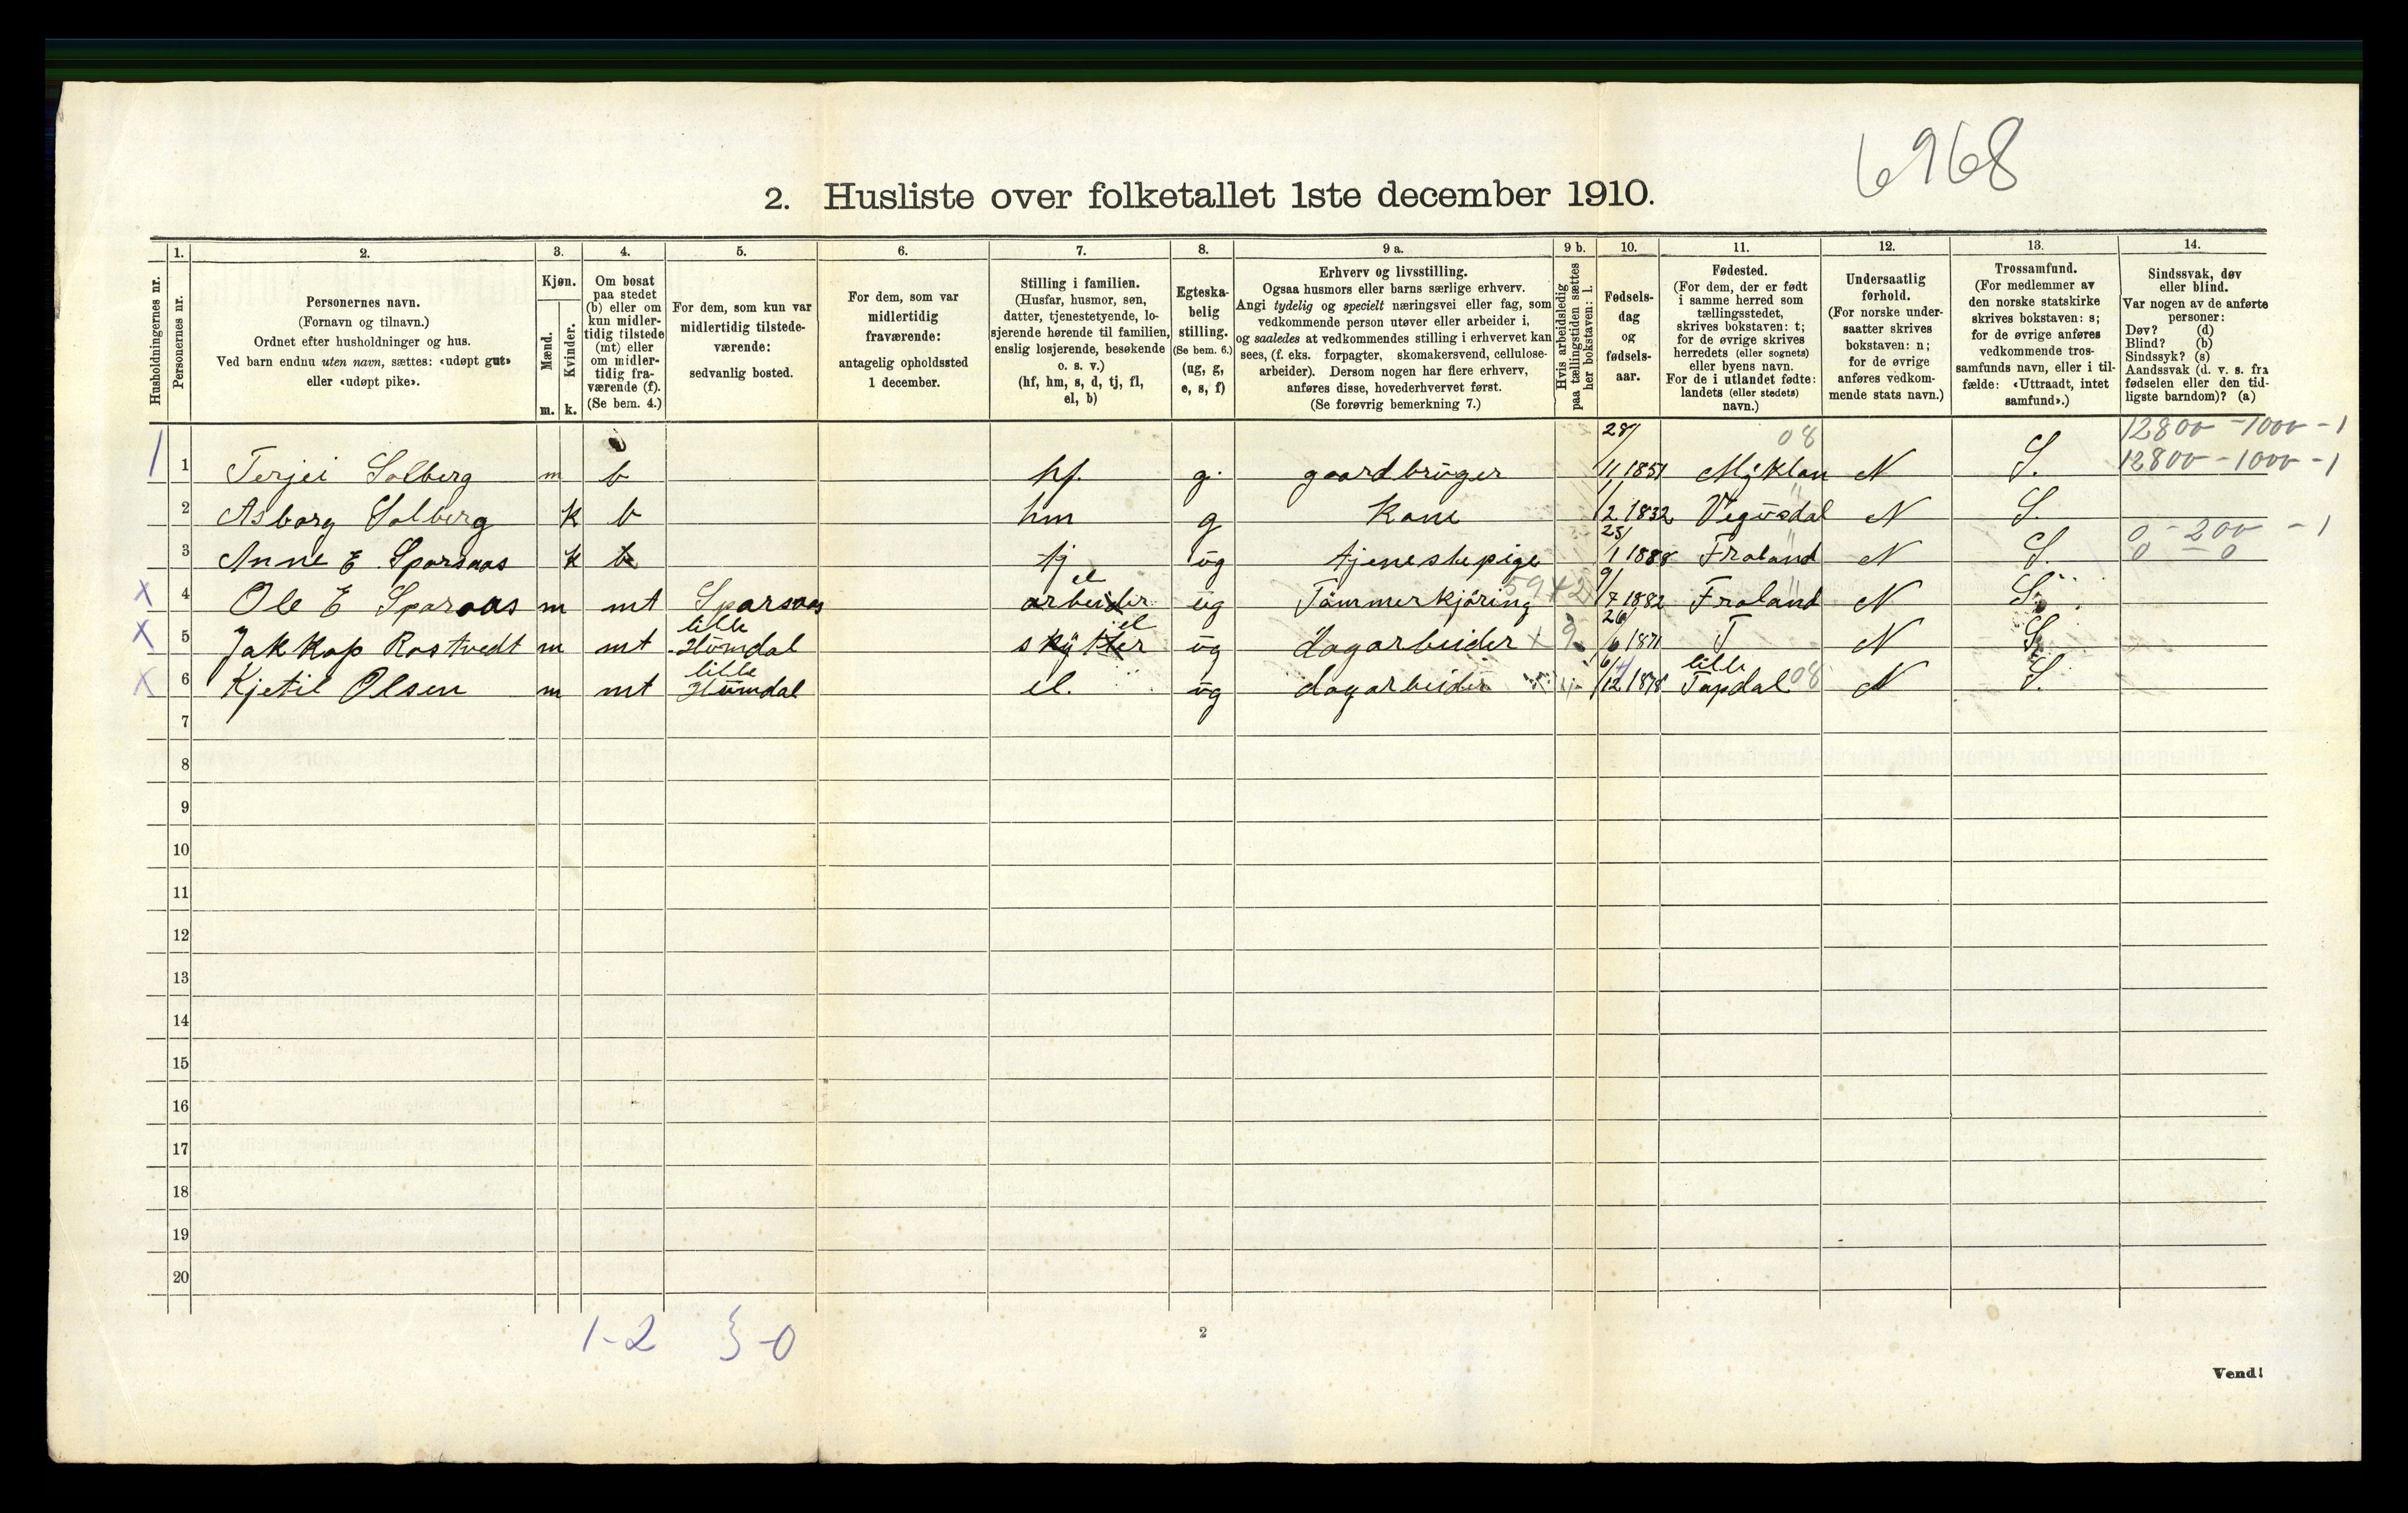 6968
2. Husliste over folketallet 1ste december 1910.
Husholdningernes nr.
1. Personernes nr.
2. Personernes navn.
(Fornavn og tilnavn.)
Ordnet efter husholdninger og hus.
Ved barn endnu uten navn, sættes: «udøpt gut»
eller «udøpt pike».
3. Kjøn.
Mænd. m.
Kvinder. k.
4. Om bosat
paa stedet
(b) eller om
kun midler-
tidig tilstede
(mt) eller
om midler-
tidig fra-
værende (f).
(Se bem. 4.)
5. For dem, som kun var
midlertidig tilstede-
værende:
sedvanlig bosted.
6. For dem, som var
midlertidig
fraværende:
antagelig opholdssted
1 december.
7. Stilling i familien.
(Husfar, husmor, søn,
datter, tjenestetyende, lo-
sjerende hørende til familien,
enslig losjerende, besøkende
o. s. v.)
(hf, hm, s, d, tj, fl,
el, b)
8. Egteska-
belig
stilling.
(Se bem. 6.)
(ug, g,
e, s, f)
9 a. Erhverv og livsstilling.
Ogsaa husmors eller barns særlige erhverv.
Angi tydelig og specielt næringsvei eller fag, som
vedkommende person utøver eller arbeider i,
og saaledes at vedkommendes stilling i erhvervet kan
sees, (f. eks. forpagter, skomakersvend, cellulose-
arbeider). Dersom nogen har flere erhverv,
anføres disse, hovederhvervet først.
(Se forøvrig bemerkning 7.)
9 b. Hvis arbeidsledig
paa tællingstiden sættes
her bokstaven: l.
10. Fødsels-
dag
og
fødsels-
aar.
11. Fødested.
(For dem, der er født
i samme herred som
tællingsstedet,
skrives bokstaven: t;
for de øvrige skrives
herredets (eller sognets)
eller byens navn.
For de i utlandet fødte:
landets (eller stedets)
navn.)
12. Undersaatlig
forhold.
(For norske under-
saatter skrives
bokstaven: n;
for de øvrige
anføres vedkom-
mende stats navn.)
13. Trossamfund.
(For medlemmer av
den norske statskirke
skrives bokstaven: s;
for de øvrige anføres
vedkommende tros-
samfunds navn, eller i til-
fælde: «Uttraadt, intet
samfund».)
14. Sindssvak, døv
eller blind.
Var nogen av de anførte
personer:
Døv? (d)
Blind? (b)
Sindssyk? (s)
Aandssvak (d. v. s. fra
fødselen eller den tid-
ligste barndom)? (a)
08 12800 - 1000 - 1
1 1 Terjei Solberg m b hf. g. gaardbruger 28/11 1851 Mÿklan N S. 12800 - 1000 - 1
2 Asborg Solberg k b hm g Kone 1/2 1832 Vegusdal N S.
0 - 200 - 1
3 Anne E Sparsaas k b tj ug tjenestepige 25/1 1888 Froland N S. 0 - 0
el
X 4 Ole E Sparsaas m mt Sparsaas arbeider ug Tömmerkjöring 5942 9/7 1882 Froland N S.
lille el
X 5 Jakkop Rostvedt m mt Humdal skytter ug dagarbeider X 26/6 1871 T N S.
lille lille
X 6 Kjetil Olsen m mt Humdal el. ug dagarbeider 6/12 1878 Tapdal 08 N S.
7
8
9
10
11
12
13
14
15
16
17
18
19
20
1-2 3-0
2
Vend!